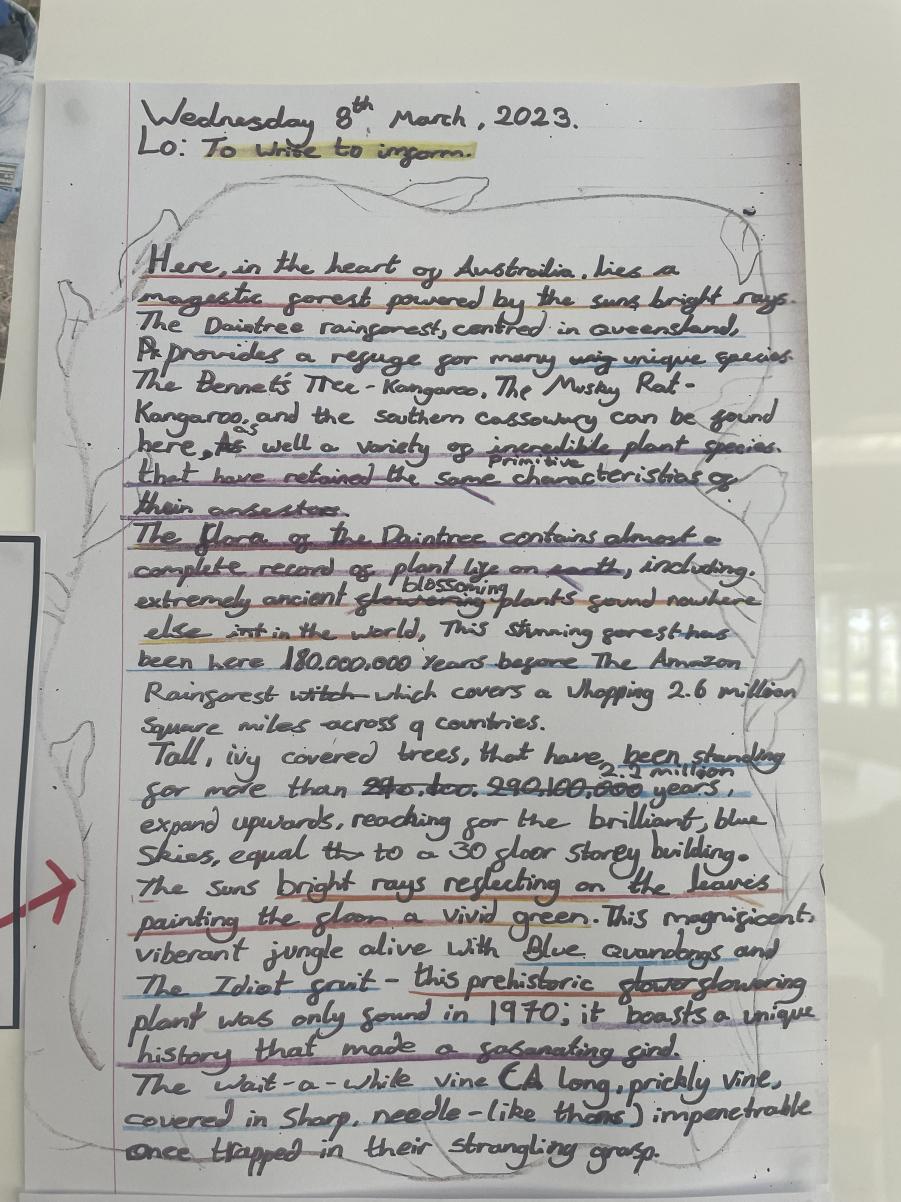 Wednesday 8th March, 2023.
Lo: To write to inform.
Here, in the heart of Austrailia, lies a
magestic forest powered by the suns bright rays.
The Daintree rainforest, centred in Queensland,
provides a refuge for many unique species.
The Bennet's Tree-Kangaroo, The Musky Rat-
Kangaroo, and the southern cassowury can be found
here, as well a variety of incredible plant species.
that have retained the same primitive characteristics of
their
The flora of the Daintree contains almost a
complete record of plant life on earth, including,
extremely ancient flowering blossoming plants found nowhere
else int in the world, This stunning forest has
been here 180.000.000 years before The Amazon
Rainforest witch which covers a whopping 2.6 million
square miles across 9 countries.
Tall, ivy covered trees, that have, been standing
for more than 290,100,000 million years,
expand upwards, reaching for the brilliant, blue
skies, equal th to a 30 floor storey building.
The suns bright rays reflecting on the leaves
painting the floor a vivid green. This magnificent,
viberant jungle alive with Blue Quandongs and
The Idiot fruit - this prehistoric flower flowering
plant was only found in 1970; it boasts a unique
history that made a fasanating find.
The wait-a-while vine (A long, prickly vine,
covered in sharp, needle-like thons) impenetrable
once trapped in their strangling grasp.